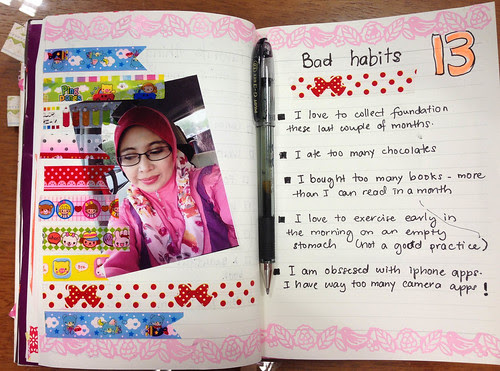 Ping
Panda
Bad habits
13
I love to collect foundation
these last couple of months.
I ate too many chocolates
I bought too many books - more
than I can read in a month
I love to exercise early in
the morning on an empty
stomach (not a good practice)
I am obsessed with iphone apps.
I have way too many camera apps!